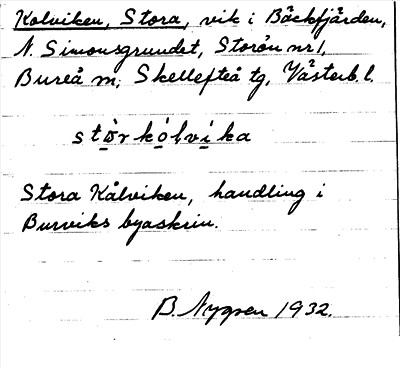 Kolviken, Stora, vik i Bäckfjärden,
N. Simonsgrundet, Storön nr 1,
Bureå sn; Skellefteå tg, Västerb. l.
stòrkólvika
Stora Kålviken, handling i
Burviks byaskrin.
B. Nygren 1932.